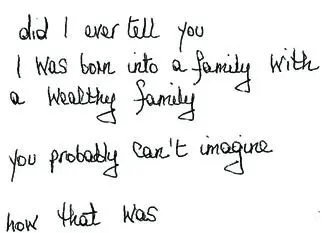 did I ever tell you
I was born into a family with
a wealthy family
you probably can't imagine
how that was